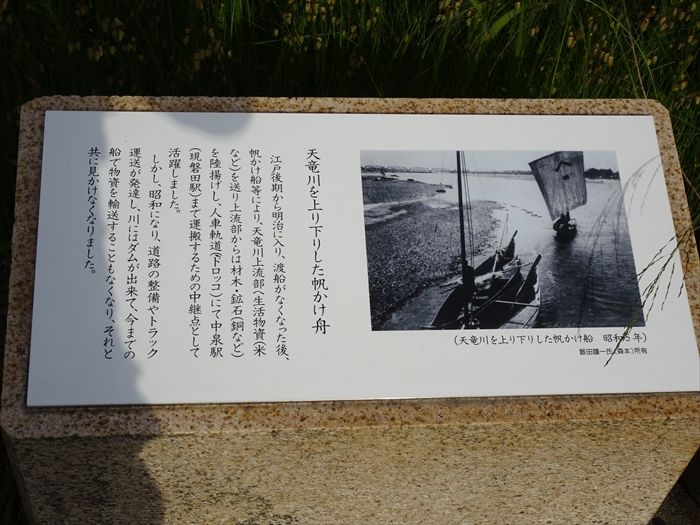 天竜川を上り下りした帆かけ舟
江戸後期から明治に入り、渡船がなくなった後、
帆かけ船等により、天竜川上流部へ生活物資(米
など)を送り上流部からは材木・鉱石(銅など)
を陸揚げし、人車軌道(トロッコ)にて中泉駅
(現磐田駅)まで運搬するための中継点として
活躍しました。
しかし、昭和になり、道路の整備やトラック
運送が発達し、川にはダムが出来て、今までの
船で物資を輸送することもなくなり、それと
共に見かけなくなりました。
(天竜川を上り下りした帆かけ船 昭和5年)
飯田 一氏(森本)所有